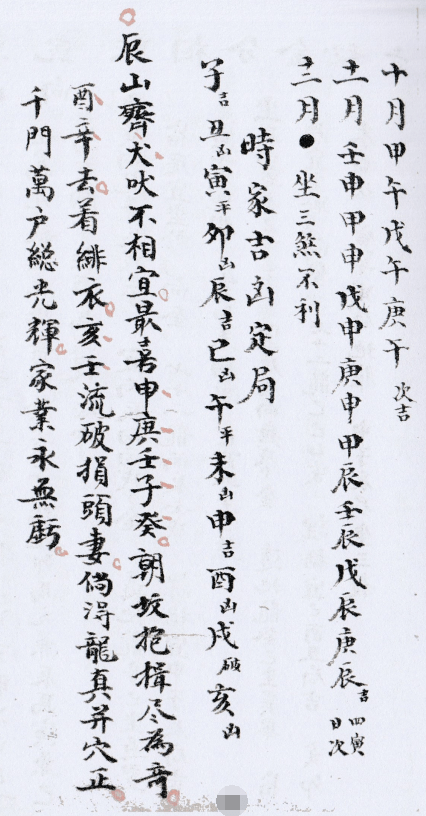 十月甲午戊午庚午次吉
十一月壬申甲申戊申庚申甲辰壬辰戊辰庚辰吉四寅日次
十二月●坐三煞不利
時家吉凶定局
子吉丑凶寅平卯凶辰吉巳凶午平未凶申吉酉凶戌破亥凶
辰山齊犬吠不相宜最喜申庚壬子癸朝坟抱揖尽為奇
酉辛去着緋衣亥壬流破損頭妻倘淂龍真并穴正
千門萬户縂光輝家業永無虧